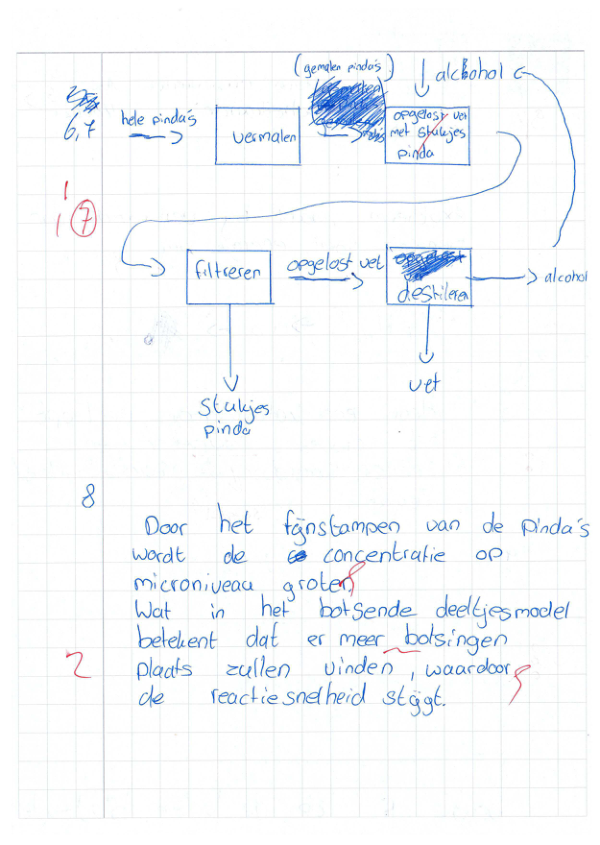 (gemalen pinda's)
alcohol
6,7
hele pinda's
vermalen
opgelost vet
met stukjes
pinda
1
1 7
filtreren
opgelost vet
destileren
alcohol
Stukjes
pinda
vet
8
Door het fijnstampen van de pinda's
wordt de concentratie op
microniveau groter,
Wat in het botsende deeltjesmodel
betekent dat er meer botsingen
2
plaats zullen vinden, waardoor
de reactiesnelheid stijgt.